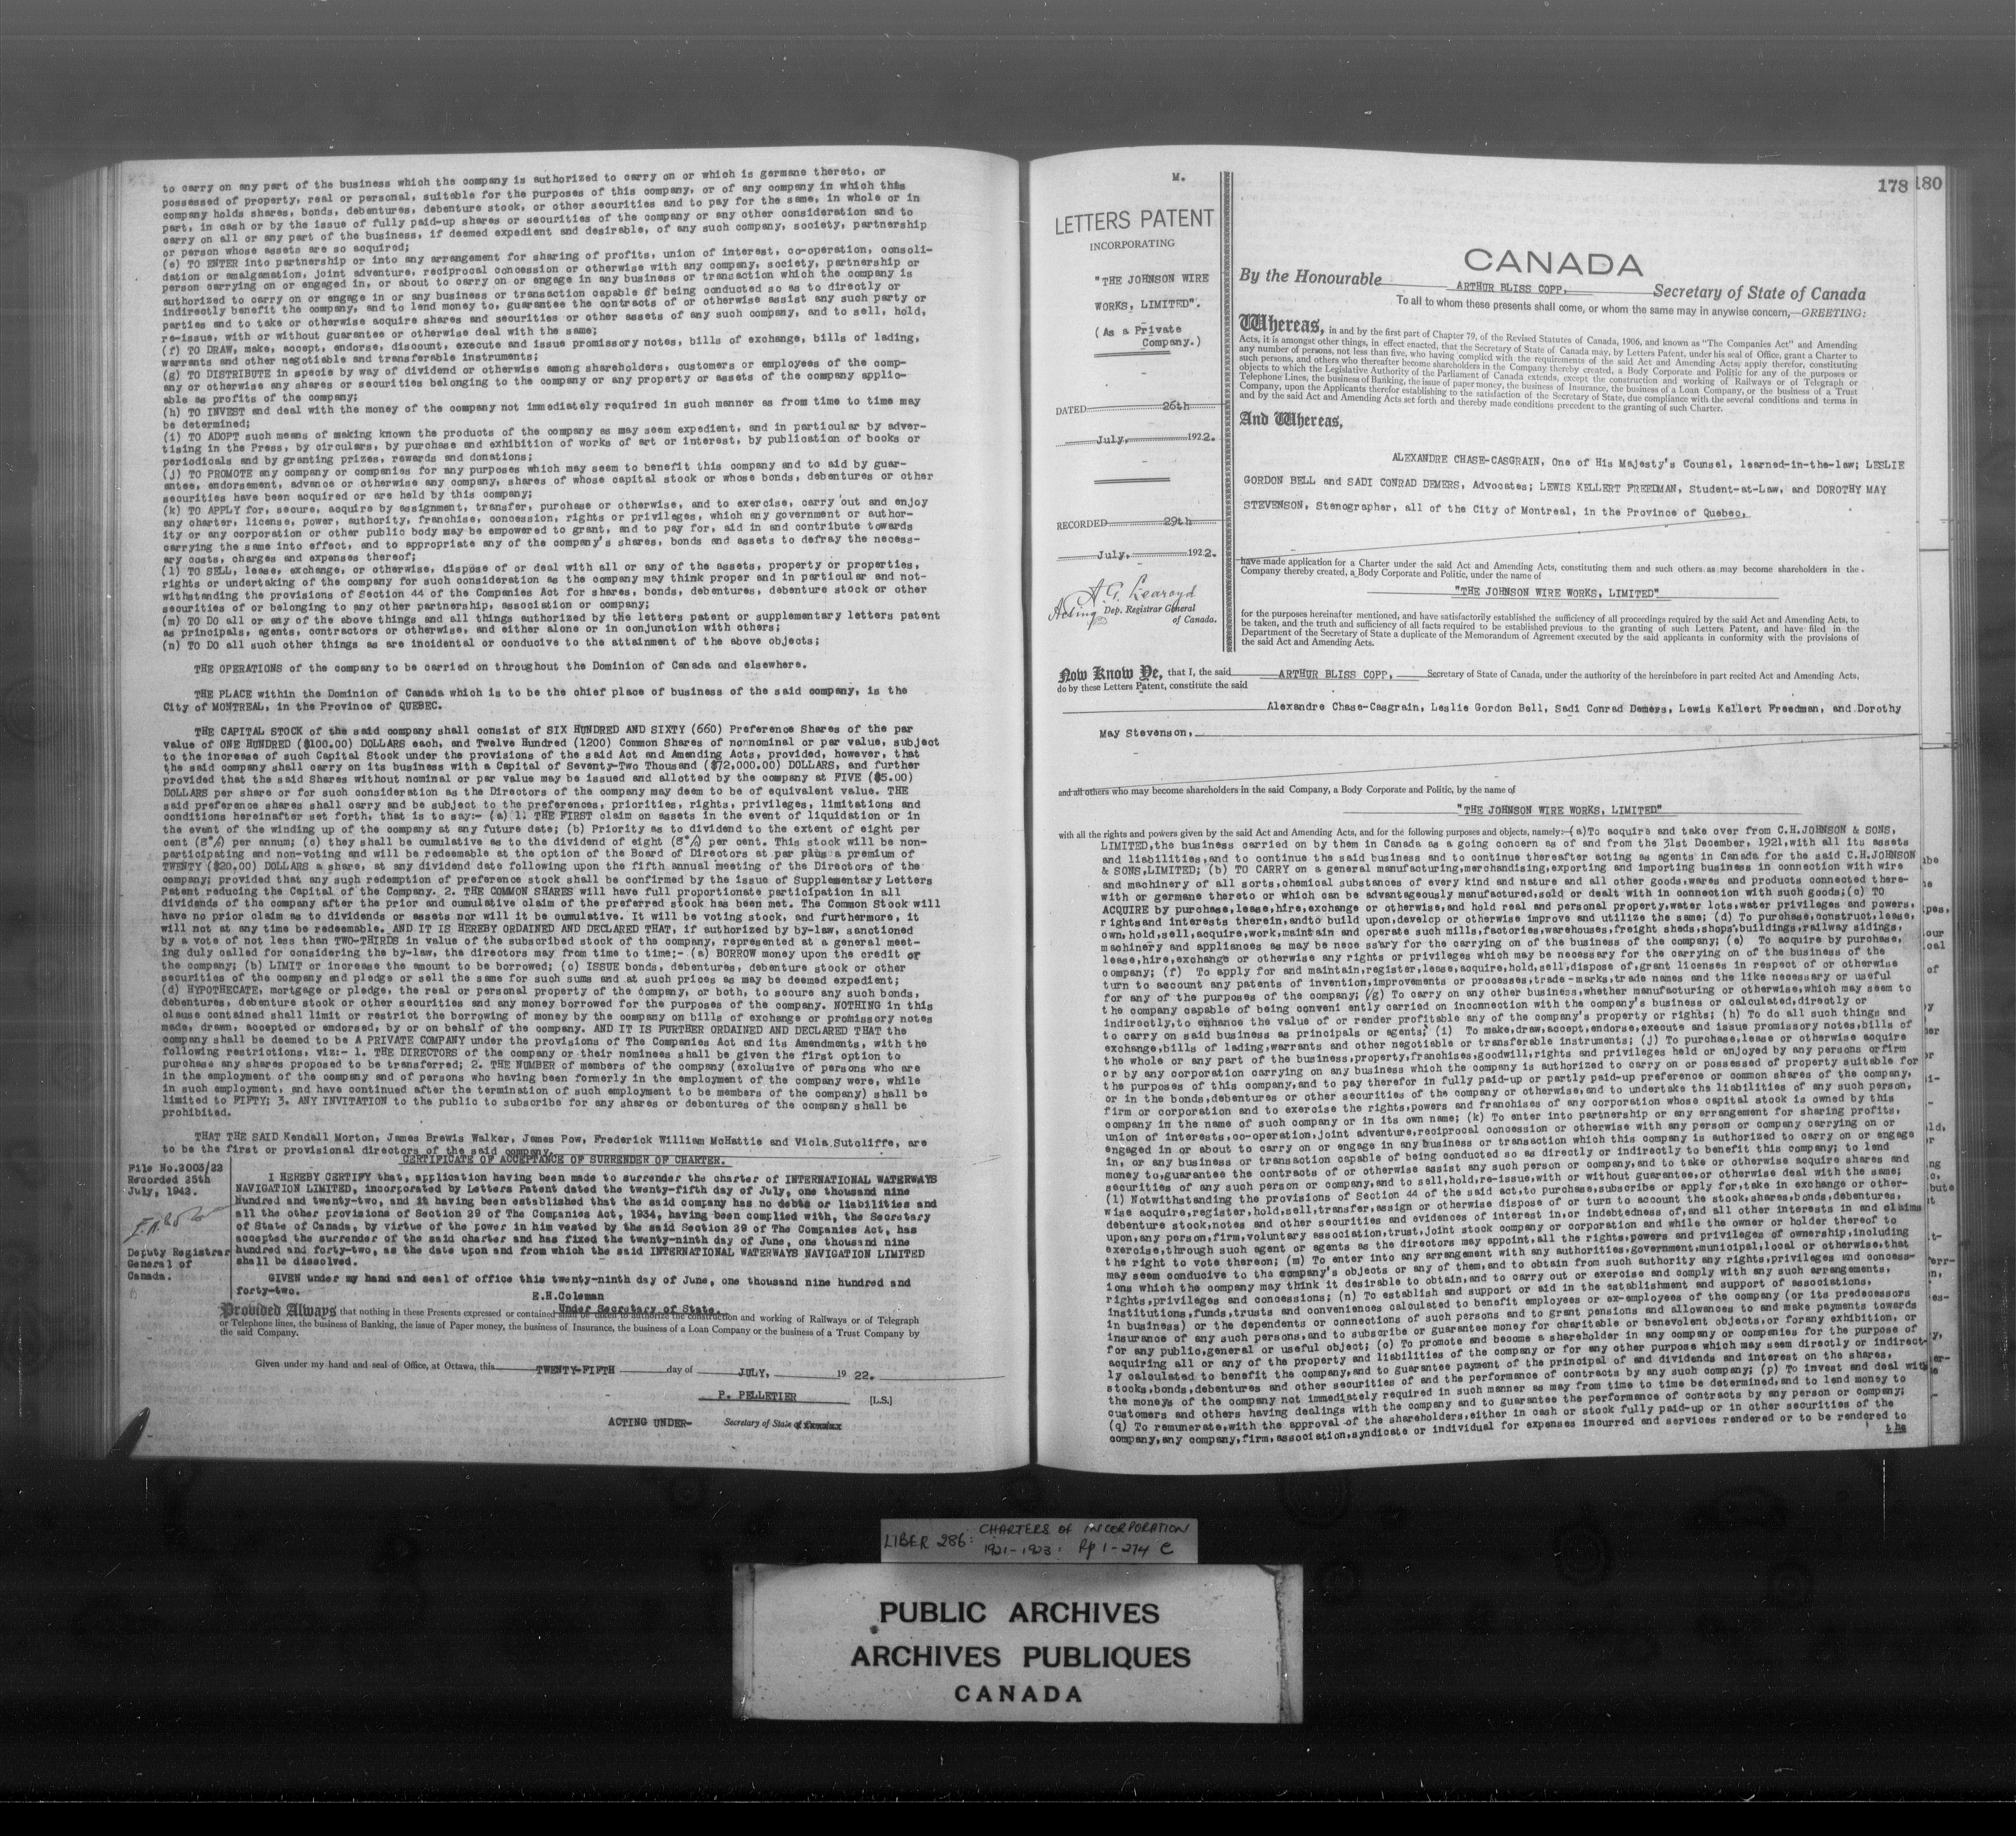 to carry on any part of the business which the company is authorized to carry on or which is germane thereto, or
possessed of property, real or personal, suitable for the purposes of this company, or of any company in which this
company holds shares, bonds, debentures, debenture stock, or other securities and to pay for the same, in whole or in
part, in cash or by the issue of fully paid-up shares or securities of the company or any other consideration and to
carry on all or any part of the business, if deemed expedient and desirable, of any such company, society, partnership
or person whose assets are so acquired;
(e) TO ENTER into partnership or into any arrangement for sharing of profits, union of interest, co-operation, consoli-
dation or amalgamation, joint adventure, reciprocal concession or otherwise with any company, society, partnership or
person carrying on or engaged in, or about to carry on or engage in any business or transaction which the company is
authorized to carry on or engage in or any business or transaction capable of being conducted so as to directly or
indirectly benefit the company, and to lend money to, guarantee the contracts of or otherwise assist any such party or
parties and to take or otherwise acquire shares and securities or other assets of any such company, and to sell, hold,
re-issue, with or without guarantee or otherwise deal with the same;
(f) TO DRAW, make, accept, endorse, discount, execute and issue promissory notes, bills of exchange, bills of lading,
warrants and other negotiable and transferable instruments;
(g) TO DISTRIBUTE in specie by way of dividend or otherwise among shareholders, customers or employees of the comp-
any or otherwise any shares or securities belonging to the company or any property or assets of the company applic-
able as profits of the company;
(h) TO INVEST and deal with the money of the company not immediately required in such manner as from time to time may
be determined;
(i) TO ADOPT such means of making known the products of the company as may seem expedient, and in particular by adver-
tising in the Press, by circulars, by purchase and exhibition of works of art or interest, by publication of books or
periodicals and by granting prizes, rewards and donations;
(j) TO PROMOTE any company or companies for any purposes which may seem to benefit this company and to aid by guar-
antee, endorsement, advance or otherwise any company, shares of whose capital stock or whose bonds, debentures or other
securities have been acquired or are held by this company;
(k) TO APPLY for, secure, acquire by assignment, transfer, purchase or otherwise, and to exercise, carry out and enjoy
any charter, license, power, authority, franchise, concession, rights or privileges, which any government or author-
ity or any corporation or other public body may be empowered to grant, and to pay for, aid in and contribute towards
carrying the same into effect, and to appropriate any of the company's shares, bonds and assets to defray the necess-
ary costs, charges and expenses thereof;
(l) TO SELL, lease, exchange, or otherwise, dispose of or deal with all or any of the assets, property or properties,
rights or undertaking of the company for such consideration as the company may think proper and in particular and not-
withstanding the provisions of Section 44 of the Companies Act for shares, bonds, debentures, debenture stock or other
securities of or belonging to any other partnership, association or company;
(m) TO DO all or any of the above things and all things authorized by the letters patent or supplementary letters patent
as principals, agents, contractors or otherwise, and either alone or in conjunction with others;
(n) TO DO all such other things as are incidental or conducive to the attainment of the above objects;
THE OPERATIONS of the company to be carried on throughout the Dominion of Canada and elsewhere.
THE PLACE within the Dominion of Canada which is to be the chief place of business of the said company, is the
City of MONTREAL, in the Province of QUEBEC.
THE CAPITAL STOCK of the said company shall consist of SIX HUNDRED AND SIXTY (660) Preference Shares of the par
value of ONE HUNDRED ($100.00) DOLLARS each, and Twelve Hundred (1200) Common Shares of nonnominal or par value, subject
to the increase of such Capital Stock under the provisions of the said Act and Amending Acts, provided, however, that
the said company shall carry on its business with a Capital of Seventy-Two Thousand ($72,000.00) DOLLARS, and further
provided that the said Shares without nominal or par value may be issued and allotted by the company at FIVE ($5.00)
DOLLARS per share or for such consideration as the Directors of the company may deem to be of equivalent value. THE
said preference shares shall carry and be subject to the preferences, priorities, rights, privileges, limitations and
conditions hereinafter set forth, that is to say:- (a) 1. THE FIRST claim on assets in the event of liquidation or in
the event of the winding up of the company at any future date; (b) Priority as to dividend to the extent of eight per
cent (8%) per annum; (c) they shall be cumulative as to the dividend of eight (8%) per cent. This stock will be non-
participating and non-voting and will be redeemable at the option of the Board of Directors at par plus a premium of
TWENTY ($20.00) DOLLARS a share, at any dividend date following upon the fifth annual meeting of the Directors of the
company; provided that any such redemption of preference stock shall be confirmed by the issue of Supplementary Letters
Patent reducing the Capital of the Company. 2. THE COMMON SHARES will have full proportionate participation in all
dividends of the company after the prior and cumulative claim of the preferred stock has been met. The Common Stock will
have no prior claim as to dividends or assets nor will it be cumulative. It will be voting stock, and furthermore, it
will not at any time be redeemable. AND IT IS HEREBY ORDAINED AND DECLARED THAT, if authorized by by-law, sanctioned
by a vote of not less than TWO-THIRDS in value of the subscribed stock of the company, represented at a general meet-
ing duly called for considering the by-law, the directors may from time to time;- (a) BORROW money upon the credit or
the company; (b) LIMIT or increase the amount to be borrowed; (c) ISSUE bonds, debentures, debenture stock or other
securities of the company and pledge or sell the same for such sums and at such prices as may be deemed expedient;
(d) HYPOTHECATE, mortgage or pledge, the real or personal property of the company, or both, to secure any such bonds,
debentures, debenture stock or other securities and any money borrowed for the purposes of the company. NOTHING in this
clause contained shall limit or restrict the borrowing of money by the company on bills of exchange or promissory notes
made, drawn, accepted or endorsed, by or on behalf of the company. AND IT IS FURTHER ORDAINED AND DECLARED THAT the
company shall be deemed to be A PRIVATE COMPANY under the provisions of The Companies Act and its Amendments, with the
following restrictions, viz:- 1. THE DIRECTORS of the company or their nominees shall be given the first option to
purchase any shares proposed to be transferred; 2. THE NUMBER of members of the company (exclusive of persons who are
in the employment of the company and of persons who having been formerly in the employment of the company were, while
in such employment, and have continued after the termination of such employment to be members of the company) shall be
limited to FIFTY; 3. ANY INVITATION to the public to subscribe for any shares or debentures of the company shall be
prohibited.
THAT THE SAID Kendall Morton, James Brewis Walker, James Pow, Frederick William McHattie and Viola Sutcliffe, are
to be the first or provisional directors of the said company.
CERTIFICATE OF ACCEPTANCE OF SURRENDER OF CHARTER.
File No.2003/22
Recorded 25th
July, 1942.
Deputy Registrar
General of
Canada.
I HEREBY CERTIFY that, application having been made to surrender the charter of INTERNATIONAL WATERWAYS
NAVIGATION LIMITED, incorporated by Letters Patent dated the twenty-fifth day of July, one thousand nine
hundred and twenty-two, and it having been established that the said company has no debts or liabilities and
all the other provisions of Section 29 of The Companies Act, 1934, having been complied with, the Secretary
of State of Canada, by virtue of the power in him vested by the said Section 29 of The Companies Act, has
accepted the surrender of the said charter and has fixed the twenty-ninth day of June, one thousand nine
hundred and forty-two, as the date upon and from which the said INTERNATIONAL WATERWAYS NAVIGATION LIMITED
shall be dissolved.
GIVEN under my hand and seal of office this twenty-ninth day of June, one thousand nine hundred and
forty-two.
E.H.Coleman
Under Secretary of State.
Provided Always that nothing in these Presents expressed or contained shall be taken to authorize the construction and working of Railways or of Telegraph
or Telephone lines, the business of Banking, the issue of Paper money, the business of Insurance, the business of a Loan Company or the business of a Trust Company by
the said Company.
Given under my hand and seal of Office, at Ottawa, this TWENTY-FIFTH day of JULY, 19 22.
P. PELLETIER [L.S.]
ACTING UNDER- Secretary of State of Canada
M.
LETTERS PATENT
INCORPORATING
"THE JOHNSON WIRE
WORKS, LIMITED".
(As a Private
Company.)
DATED 26th
July, 1922.
RECORDED 29th
July, 1922.
A. G. Learoyd
Acting Dep. Registrar General
of Canada.
178 180
CANADA
By the Honourable ARTHUR BLISS COPP, Secretary of State of Canada
To all to whom these presents shall come, or whom the same may in anywise concern,—GREETING:
Whereas, in and by the first part of Chapter 79, of the Revised Statutes of Canada, 1906, and known as "The Companies Act" and Amending
Acts, it is amongst other things, in effect enacted, that the Secretary of State of Canada may, by Letters Patent, under his seal of Office, grant a Charter to
any number of persons, not less than five, who having complied with the requirements of the said Act and Amending Acts, apply therefor, constituting
such persons, and others who thereafter become shareholders in the Company thereby created, a Body Corporate and Politic for any of the purposes or
objects to which the Legislative Authority of the Parliament of Canada extends, except the construction and working of Railways or of Telegraph or
Telephone Lines, the business of Banking, the issue of paper money, the business of Insurance, the business of a Loan Company, or the business of a Trust
Company, upon the Applicants therefor establishing to the satisfaction of the Secretary of State, due compliance with the several conditions and terms in
and by the said Act and Amending Acts set forth and thereby made conditions precedent to the granting of such Charter.
And Whereas,
ALEXANDRE CHASE-CASGRAIN, One of His Majesty's Counsel, learned-in-the-law; LESLIE
GORDON BELL and SADI CONRAD DEMERS, Advocates; LEWIS KELLERT FREEDMAN, Student-at-Law, and DOROTHY MAY
STEVENSON, Stenographer, all of the City of Montreal, in the Province of Quebec,
have made application for a Charter under the said Act and Amending Acts, constituting them and such others as may become shareholders in the
Company thereby created, a Body Corporate and Politic, under the name of
"THE JOHNSON WIRE WORKS, LIMITED"
for the purposes hereinafter mentioned, and have satisfactorily established the sufficiency of all proceedings required by the said Act and Amending Acts, to
be taken, and the truth and sufficiency of all facts required to be established previous to the granting of such Letters Patent, and have filed in the
Department of the Secretary of State a duplicate of the Memorandum of Agreement executed by the said applicants in conformity with the provisions of
the said Act and Amending Acts.
Now Know Ye, that I, the said ARTHUR BLISS COPP, Secretary of State of Canada, under the authority of the hereinbefore in part recited Act and Amending Acts,
do by these Letters Patent, constitute the said
Alexandre Chase-Casgrain, Leslie Gordon Bell, Sadi Conrad Demers, Lewis Kellert Freedman, and Dorothy
May Stevenson,
and all others who may become shareholders in the said Company, a Body Corporate and Politic, by the name of
"THE JOHNSON WIRE WORKS, LIMITED"
with all the rights and powers given by the said Act and Amending Acts, and for the following purposes and objects, namely:—(a)To acquire and take over from C.H.JOHNSON & SONS,
LIMITED,the business carried on by them in Canada as a going concern as of and from the 31st December, 1921,with all its assets
and liabilities,and to continue the said business and to continue thereafter acting as agents in Canada for the said C.H.JOHNSON
& SONS,LIMITED; (b) TO CARRY on a general manufacturing,merchandising,exporting and importing business in connection with wire
and machinery of all sorts,chemical substances of every kind and nature and all other goods,wares and products connected there-
with or germane thereto or which can be advantageously manufactured,sold or dealt with in connection with such goods;(c) TO
ACQUIRE by purchase,lease,hire,exchange or otherwise,and hold real and personal property,water lots,water privileges and powers,
rights and interests therein,andto build upon,develop or otherwise improve and utilize the same; (d) To purchase,construct,lease,
own,hold,sell,acquire,work,maintain and operate such mills,factories,warehouses,freight sheds,shops,buildings,railway sidings,
machinery and appliances as may be necessary for the carrying on of the business of the company; (e) To acquire by purchase,
lease,hire,exchange or otherwise any rights or privileges which may be necessary for the carrying on of the business of the
company; (f) To apply for and maintain,register,lease,acquire,hold,sell,dispose of,grant licenses in respect of or otherwise
turn to account any patents of invention,improvements or processes,trade-marks,trade names and the like necessary or useful
for any of the purposes of the company; (g) To carry on any other business,whether manufacturing or otherwise,which may seem to
the company capable of being conveni ently carried on inconnection with the company's business or calculated,directly or
indirectly,to enhance the value of or render profitable any of the company's property or rights; (h) To do all such things and
to carry on said business as principals or agents; (i) To make,draw,accept,endorse,execute and issue promissory notes,bills of
exchange,bills of lading,warrants and other negotiable or transferable instruments; (j) To purchase,lease or otherwise acquire
the whole or any part of the business,property,franchises,goodwill,rights and privileges held or enjoyed by any persons orfirm
or by any corporation carrying on any business which the company is authorized to carry on or possessed of property suitable for
the purposes of this company,and to pay therefor in fully paid-up or partly paid-up preference or common shares of the company,
or in the bonds,debentures or other securities of the company or otherwise,and to undertake the liabilities of any such person,
firm or corporation and to exercise the rights,powers and franchises of any corporation whose capital stock is owned by this
company in the name of such company or in its own name; (k) To enter into partnership or any arrangement for sharing profits,
union of interests,co-operation,joint adventure,reciprocal concession or otherwise with any person or company carrying on or
engaged in or about to carry on or engage in any business or transaction which this company is authorized to carry on or engage
in, or any business or transaction capable of being conducted so as directly or indirectly to benefit this company; to lend
money to,guarantee the contracts of or otherwise assist any such person or company,and to take or otherwise acquire shares and
securities of any such person or company,and to sell,hold,re-issue,with or without guarantee,or otherwise deal with the same;
(l) Notwithstanding the provisions of Section 44 of the said act,to purchase,subscribe or apply for,take in exchange or other-
wise acquire,register,hold,sell,transfer,assign or otherwise dispose of or turn to account the stock,shares,bonds,debentures,
debenture stock,notes and other securities and evidences of interest in,or indebtedness of,and all other interests in and claims
upon,any person,firm,voluntary association,trust,joint stock company or corporation and while the owner or holder thereof to
exercise,through such agent or agents as the directors may appoint,all the rights,powers and privileges of ownership,including
the right to vote thereon; (m) To enter into any arrangement with any authorities,government,municipal,local or otherwise,that
may seem conducive to the company's objects or any of them,and to obtain from such authority any rights,privileges and concess-
ions which the company may think it desirable to obtain,and to carry out or exercise and comply with any such arrangements,
rights,privileges and concessions; (n) To establish and support or aid in the establishment and support of associations,
institutions,funds,trusts and conveniences calculated to benefit employees or ex-employees of the company (or its predecessors
in business) or the dependents or connections of such persons and to grant pensions and allowances to and make payments towards
insurance of any such persons,and to subscribe or guarantee money for charitable or benevolent objects,or forany exhibition, or
for any public,general or useful object; (o) To promote and become a shareholder in any company or companies for the purpose of
acquiring all or any of the property and liabilities of the company or for any other purpose which may seem directly or indirect-
ly calculated to benefit the company,and to guarantee payment of the principal of and dividends and interest on the shares,
stocks,bonds,debentures and other securities of and the performance of contracts by any such company; (p) To invest and deal with
the moneys of the company not immediately required in such manner as may from time to time be determined,and to lend money to
customers and others having dealings with the company and to guarantee the performance of contracts by any person or company;
(q) To remunerate,with the approval of the shareholders,either in cash or stock fully paid-up or in other securities of the
company,any company,firm,association,syndicate or individual for expenses incurred and services rendered or to be rendered to
the
LIBER 286: CHARTERS OF INCORPORATION
1921-1923: Pp 1-274 C
PUBLIC ARCHIVES
ARCHIVES PUBLIQUES
CANADA